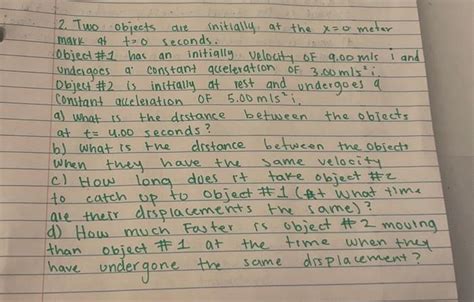 2. Two objects are initially at the x=0 meter
mark at t=0 seconds.
Object #1 has an initially velocity of 9.00 m/s i and
undergoes a constant acceleration of 3.00 m/s² i.
Object #2 is initially at rest and undergoes a
constant acceleration of 5.00 m/s² i.
a) what is the distance between the objects
at t= 4.00 seconds?
b) what is the distance between the objects
when they have the same velocity
c) How long does it take object #2
to catch up to object #1 (At what time
are their displacements the same)?
d) How much faster is object #2 moving
than object #1 at the time when they
have undergone the same displacement?